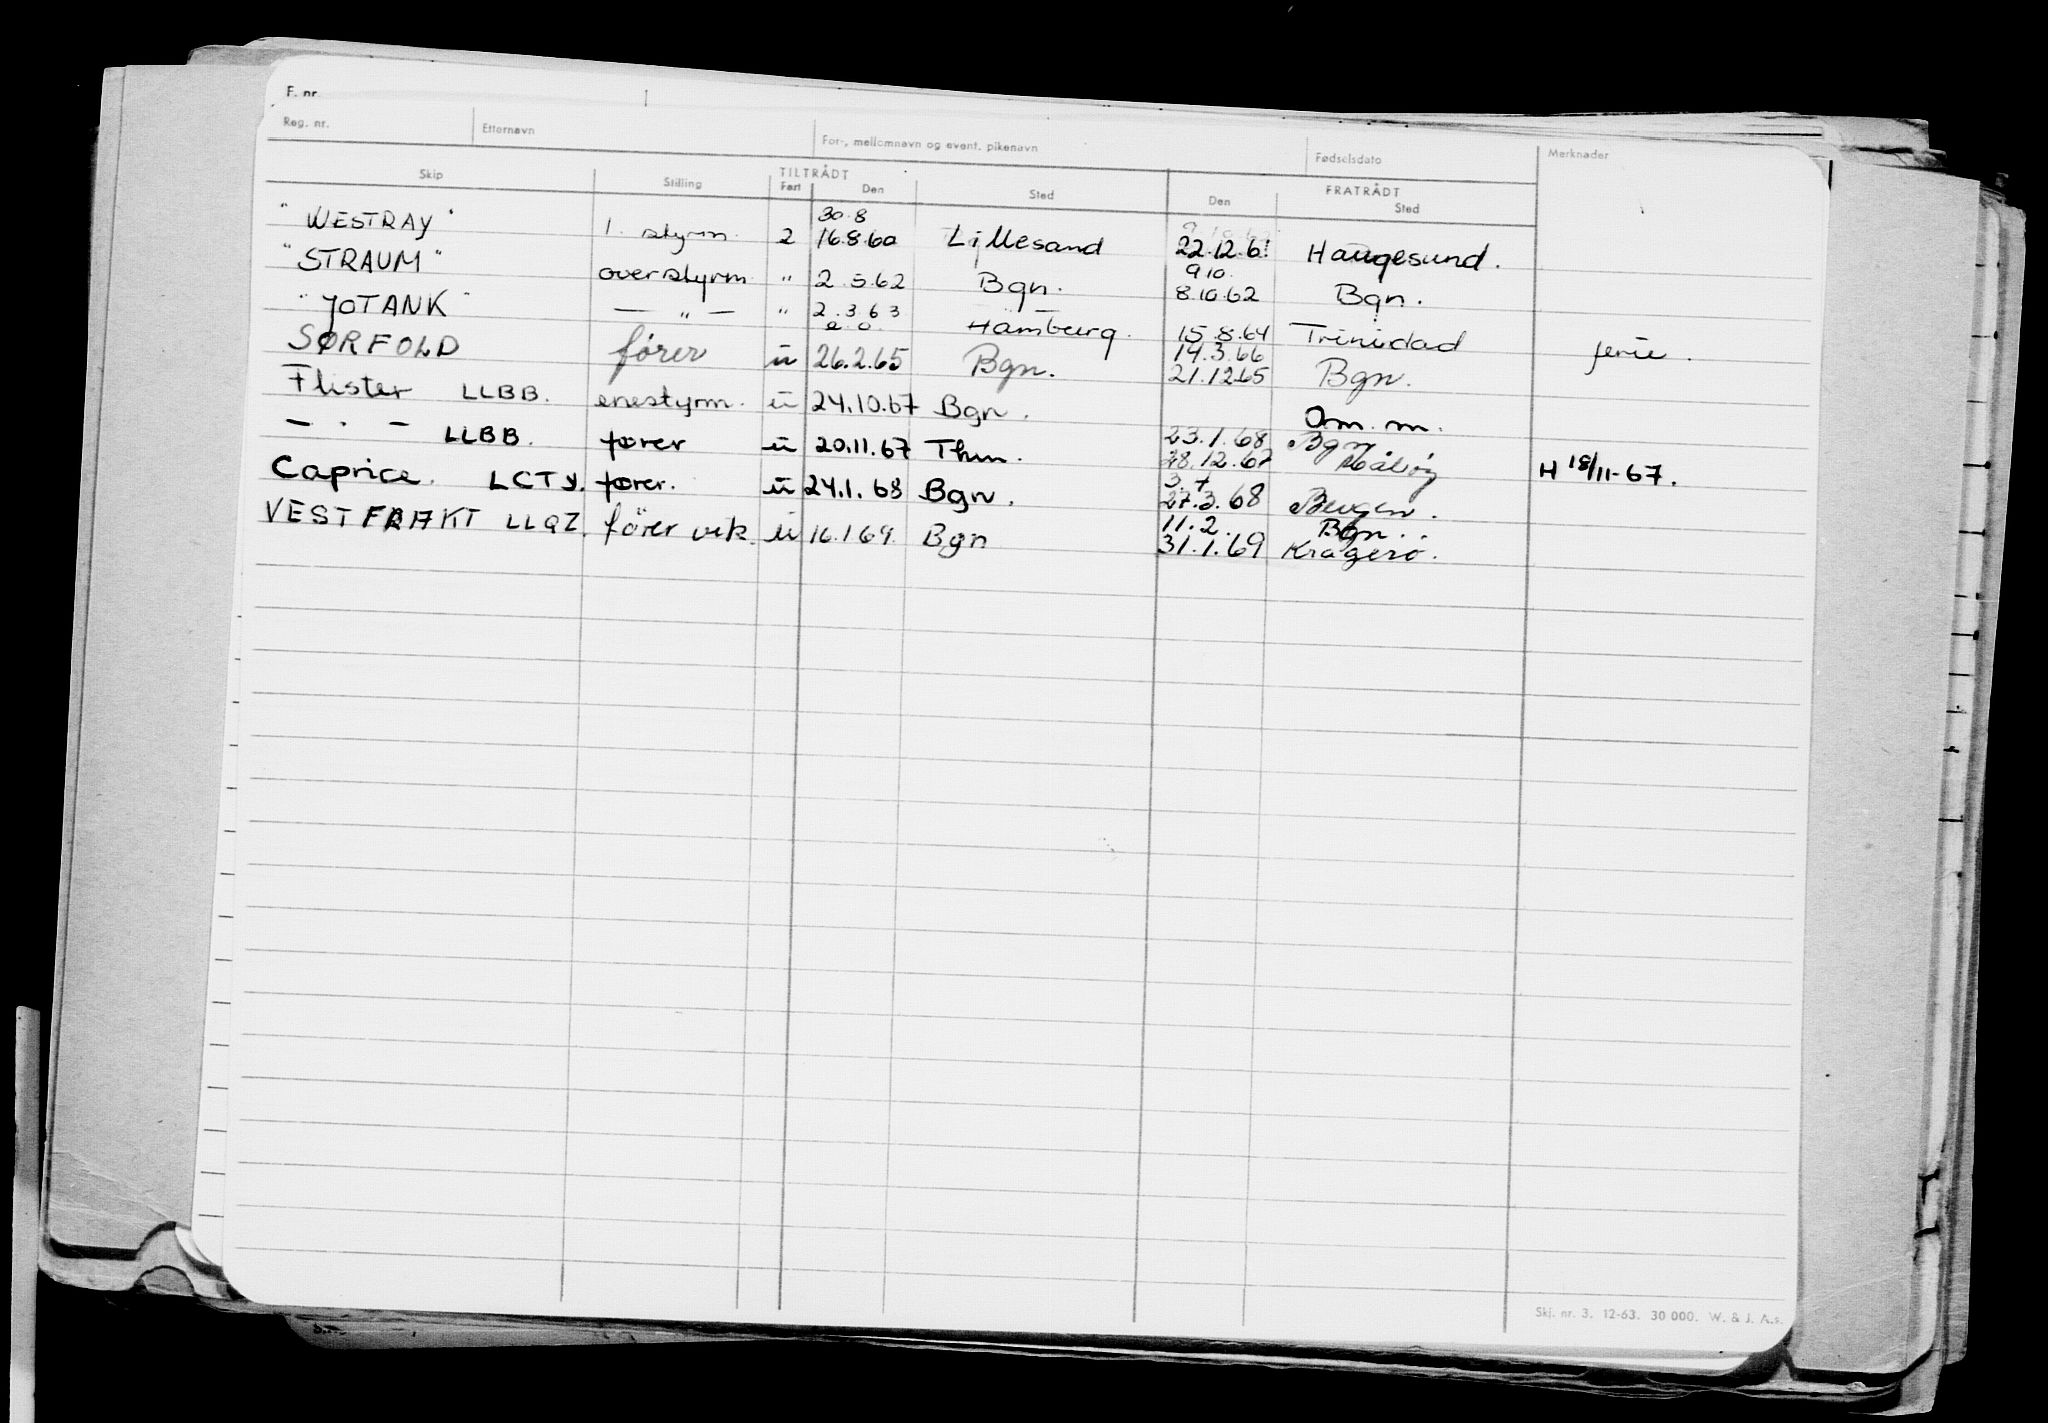 F. nr.
Reg. nr. Etternavn For-, mellomnavn og event. pikenavn Fødselsdato Merknader
Skip Stilling TILTRÅDT Fart Den Sted FRATRÅDT Den Sted
30.8
"WESTRAY" 1. styrm. 2 16.8.60 Lillesand 22.12.61 Haugesund.
9 10.
"STRAUM" overstyrm " 2.5.62 Bgn. 8.10.62 Bgn.
"JOTANK" — " — " 2.3 63 Hamburg. 15.8.64 Trinidad ferie.
14.3.66
SØRFOLD fører u 26.2.65 Bgn. 21.12.65 Bgn.
Flister LLBB. enestyrm. u 24.10.67 Bgn. Om. m.
23.1.68 Bgn
— " — LLBB. fører u 20.11.67 Thm. 28.12.67 Måløy H 18/11-67.
3.7
Caprice. LCTY. fører. u 24.1.68 Bgn. 27.3.68 Bergen.
11.2. Bgn.
VESTFRAKT LLQZ. fører vik. u 16.1 69. Bgn 31.1.69 Kragerø.
Skj. nr. 3. 12-63. 30 000. W. & J. A.s.